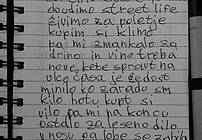 doudimo street life
živimo za poletje
kupim si klimo
pa mi zmankalo za
drino in vino treba
nove kete sprout na
uko časa je gedost
minilo ko zarado sm
kilo hotu kupt si
vilo pa mi na koncu
ostalo za leseno dilo
v nosu ga lobe so zabih